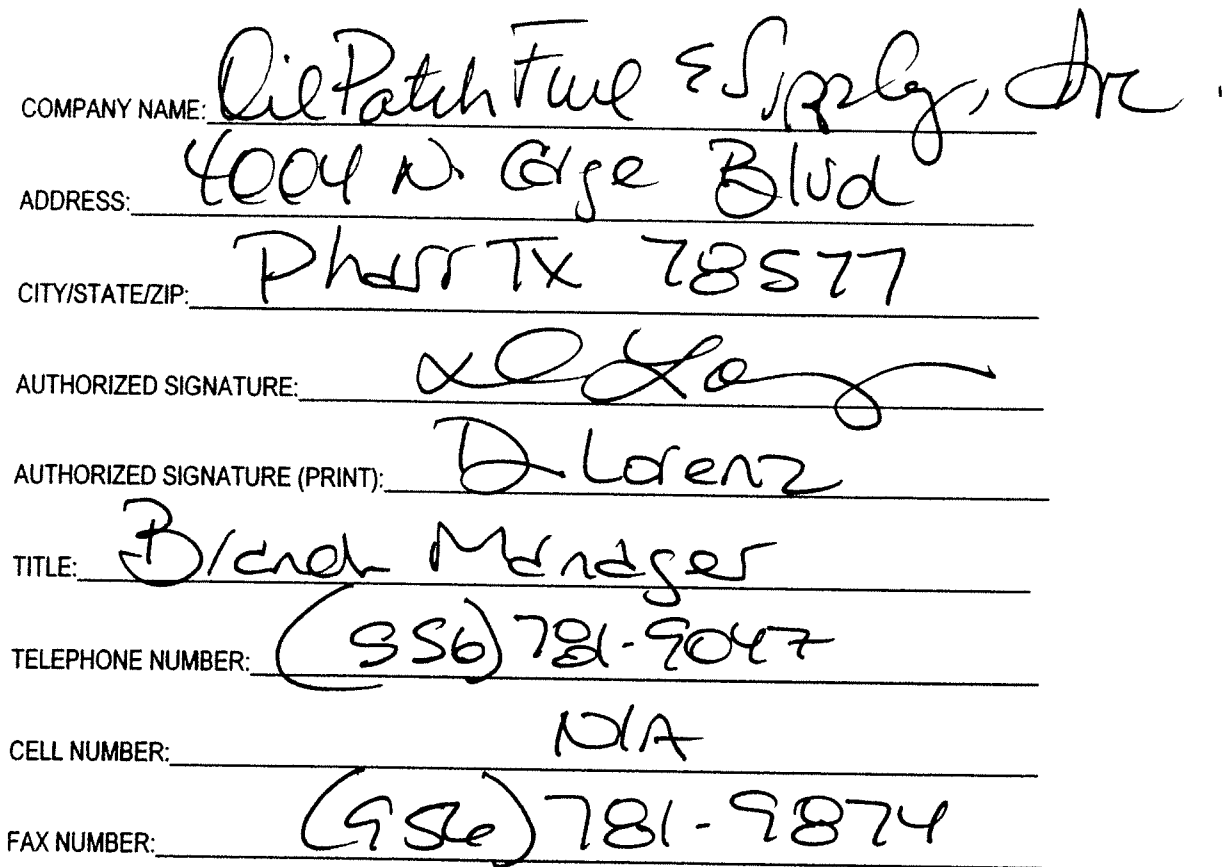 COMPANY NAME: Oil Patch Fuel & Supply, Inc.
ADDRESS: 4004 N. Cage Blvd
CITY/STATE/ZIP: Pharr TX 78577
AUTHORIZED SIGNATURE:
AUTHORIZED SIGNATURE (PRINT): D. Lorenz
TITLE: Branch Manager
TELEPHONE NUMBER: (956) 781-9047
CELL NUMBER: N/A
FAX NUMBER: (956) 781-9874